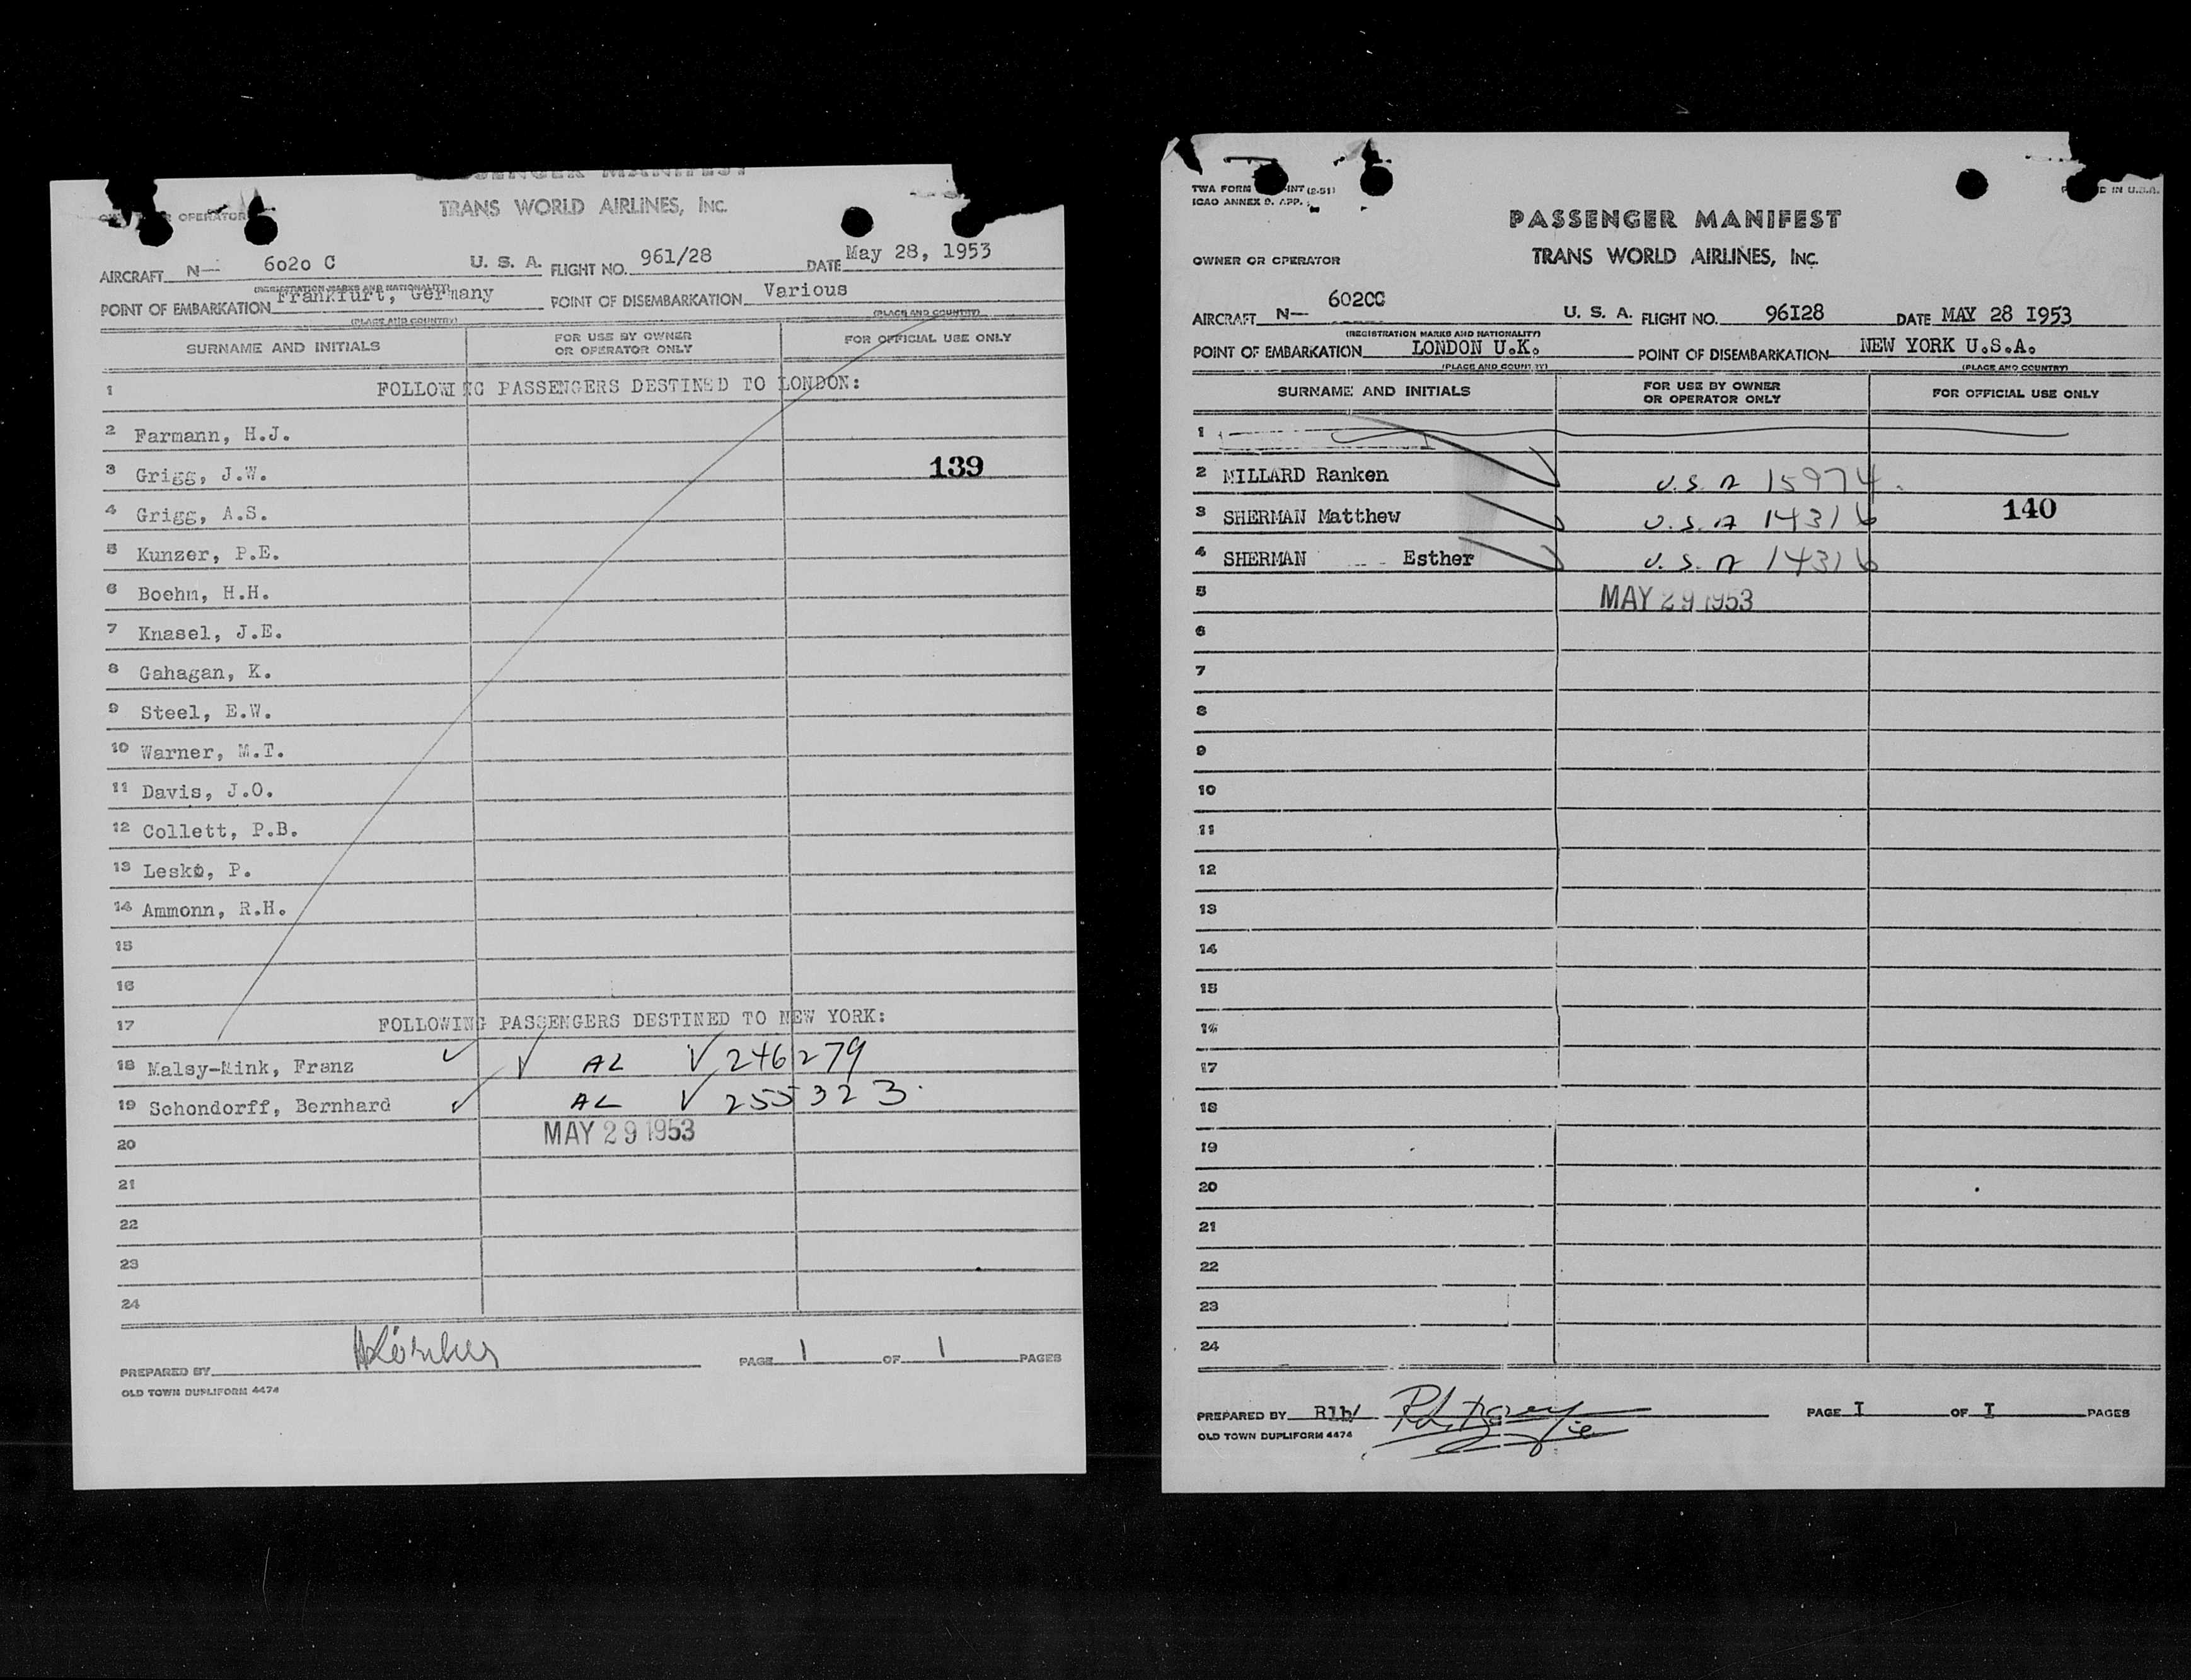 PASSENGER MANIFEST
TRANS WORLD AIRLINES, INC.
OPERATOR
AIRCRAFT N— 6020 C U. S. A. FLIGHT NO. 961/28 DATE May 28, 1953
(REGISTRATION MARKS AND NATIONALITY)
POINT OF EMBARKATION Frankfurt, Germany POINT OF DISEMBARKATION Various
(PLACE AND COUNTRY) (PLACE AND COUNTRY)
SURNAME AND INITIALS FOR USE BY OWNER OR OPERATOR ONLY FOR OFFICIAL USE ONLY
1 FOLLOWING PASSENGERS DESTINED TO LONDON:
2 Farmann, H.J.
3 Grigg, J.W. 139
4 Grigg, A.S.
5 Kunzer, P.E.
6 Boehm, H.H.
7 Knasel, J.E.
8 Gahagan, K.
9 Steel, E.W.
10 Warner, M.T.
11 Davis, J.O.
12 Collett, P.B.
13 Lesko, P.
14 Ammonn, R.H.
15
16
17 FOLLOWING PASSENGERS DESTINED TO NEW YORK:
18 Malsy-Mink, Franz ✓ ✓ AL ✓ 246279
19 Schondorff, Bernhard ✓ AL ✓ 255323.
20 MAY 29 1953
21
22
23
24
PREPARED BY PAGE 1 OF 1 PAGES
OLD TOWN DUPLIFORM 4474
TWA FORM INT (2-51)
ICAO ANNEX 9. APP. IN U.S.A.
PASSENGER MANIFEST
OWNER OR OPERATOR TRANS WORLD AIRLINES, INC.
AIRCRAFT N— 6020C U. S. A. FLIGHT NO. 96I28 DATE MAY 28 I953
(REGISTRATION MARKS AND NATIONALITY)
POINT OF EMBARKATION LONDON U.K. POINT OF DISEMBARKATION NEW YORK U.S.A.
(PLACE AND COUNTRY) (PLACE AND COUNTRY)
SURNAME AND INITIALS FOR USE BY OWNER OR OPERATOR ONLY FOR OFFICIAL USE ONLY
1
2 MILLARD Ranken U.S.A 15974.
3 SHERMAN Matthew U.S.A 14316 140
4 SHERMAN Esther U.S.A 14316
5 MAY 29 1953
6
7
8
9
10
11
12
13
14
15
16
17
18
19
20
21
22
23
24
PREPARED BY PAGE I OF I PAGES
OLD TOWN DUPLIFORM 4474